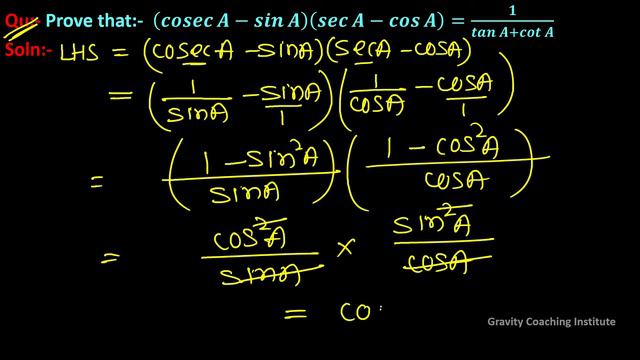 Que:- Prove that:- (cosec A − sin A)(sec A − cos A) = 1/(tan A+cot A)
Soln:- LHS = (cosecA − sinA)(secA − cosA)
= (1/sinA − sinA/1)(1/cosA − cosA/1)
= ((1 − sin²A)/sinA)((1 − cos²A)/cosA)
= cos²A/sinA × sin²A/cosA
= co
Gravity Coaching Institute